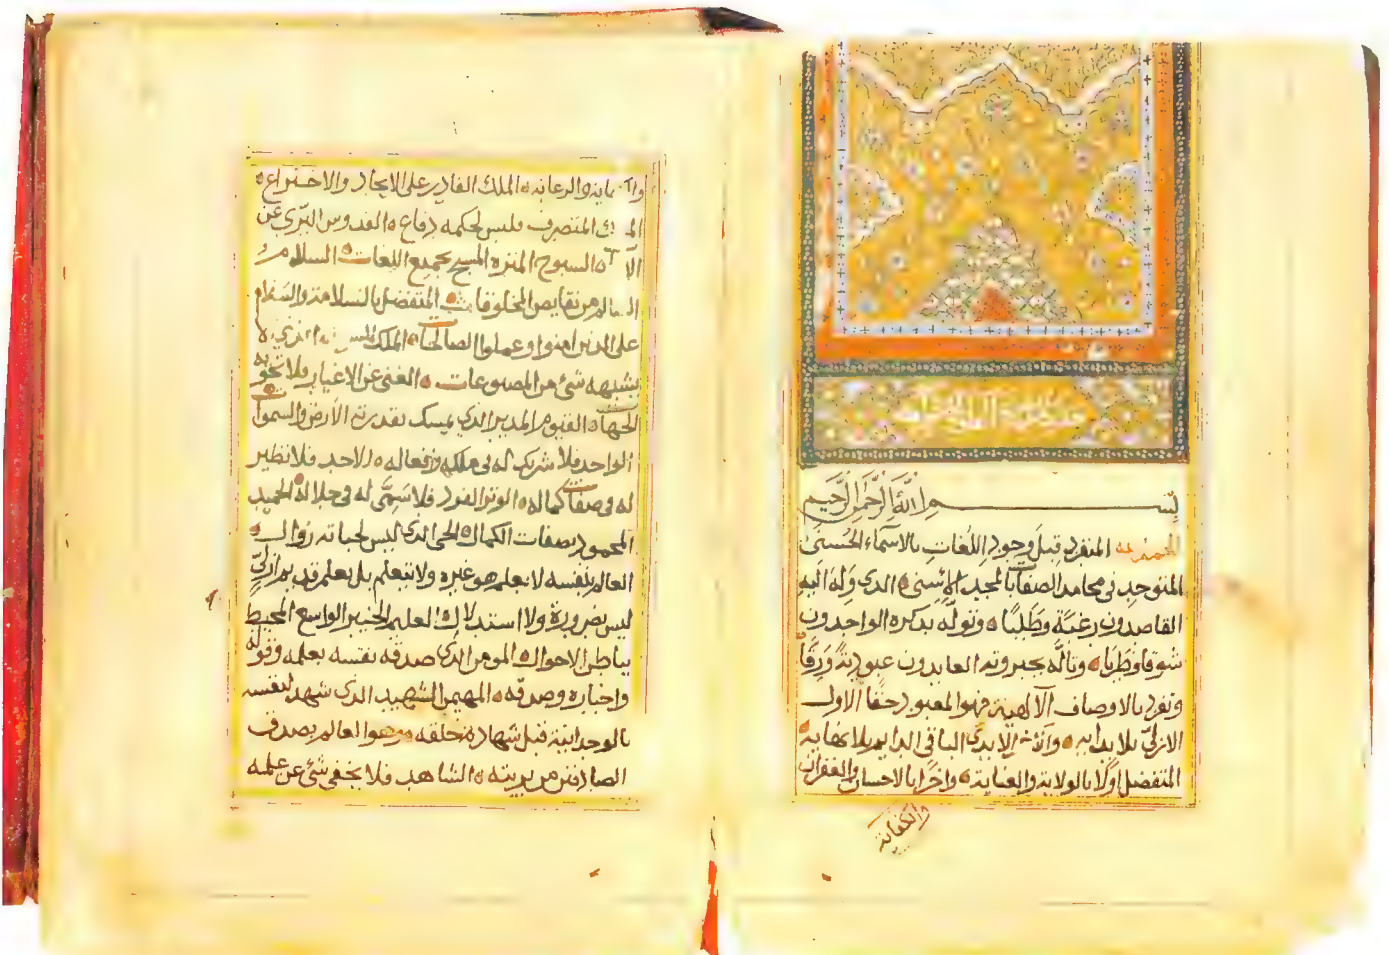 بسم الله الرحمن الرحيم
الحمد لله المنفرد قبل وجود اللغات بالاسماء الحسنى
المتوحد في محامد الصفات بالمجد الاسنى الذي وله اليه
القاصدون رغبة وطلبا وتوله بذكره الواجدون
شوقا وطربا وتاله بجبروته العابدون عبودية ورقا
وتفرد بالاوصاف الالهية فهو المعبود حقا الاول
الازلي بلا بداية والاخر الابدي الباقي الدايم بلا نهاية
المتفضل اولا بالولاية والعناية واخرا بالاحسان والغفران
والكفاية
والرعاية الملك القادر على الايجاد والاختراع
المتصرف فليس لحكمه دفاع القدوس البري عن
السبوح المنزه المسبح بجميع اللغات السلام
السالم من نقايص المخلوقات المتفضل بالسلامة والسلام
على الذين امنوا وعملوا الصالحات الملك الذي لا
يشبهه شئ من المصنوعات الغني عن الاغيار فلا تحويه
الجهات القيوم المدبر الذي يمسك بقدرته الارض والسموات
الواحد فلا شريك له في ملكه وفعاله الاحد فلا نظير
له في صفات كماله الوتر الفرد فلا سمي له في جلاله الحميد
المحمود بصفات الكمال الحي الذي ليس لحياته زوال
العالم بنفسه لا بعلم هو غيره ولا بتعلم بل بعلم قديم ازلي
ليس بضرورة ولا استدلال العليم الخبير الواسع المحيط
بباطن الاحوال المومن الذي صدق نفسه بعلمه وقوله
واخباره وصدقه المهيمن الشهيد الذي شهد لنفسه
بالوحدانية قبل شهادة خلقه وهو العالم بصدق
الصادقين من بريته الشاهد فلا يخفى شئ عن علمه